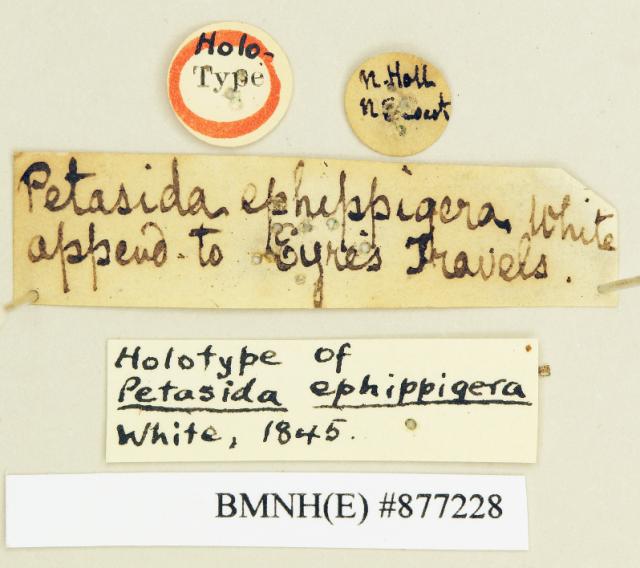 Holo-
Type
N. Holl
N E coast
Petasida ephippigera White
append. to Eyre's Travels.
Holotype of
Petasida ephippigera
White, 1845.
BMNH(E) #877228